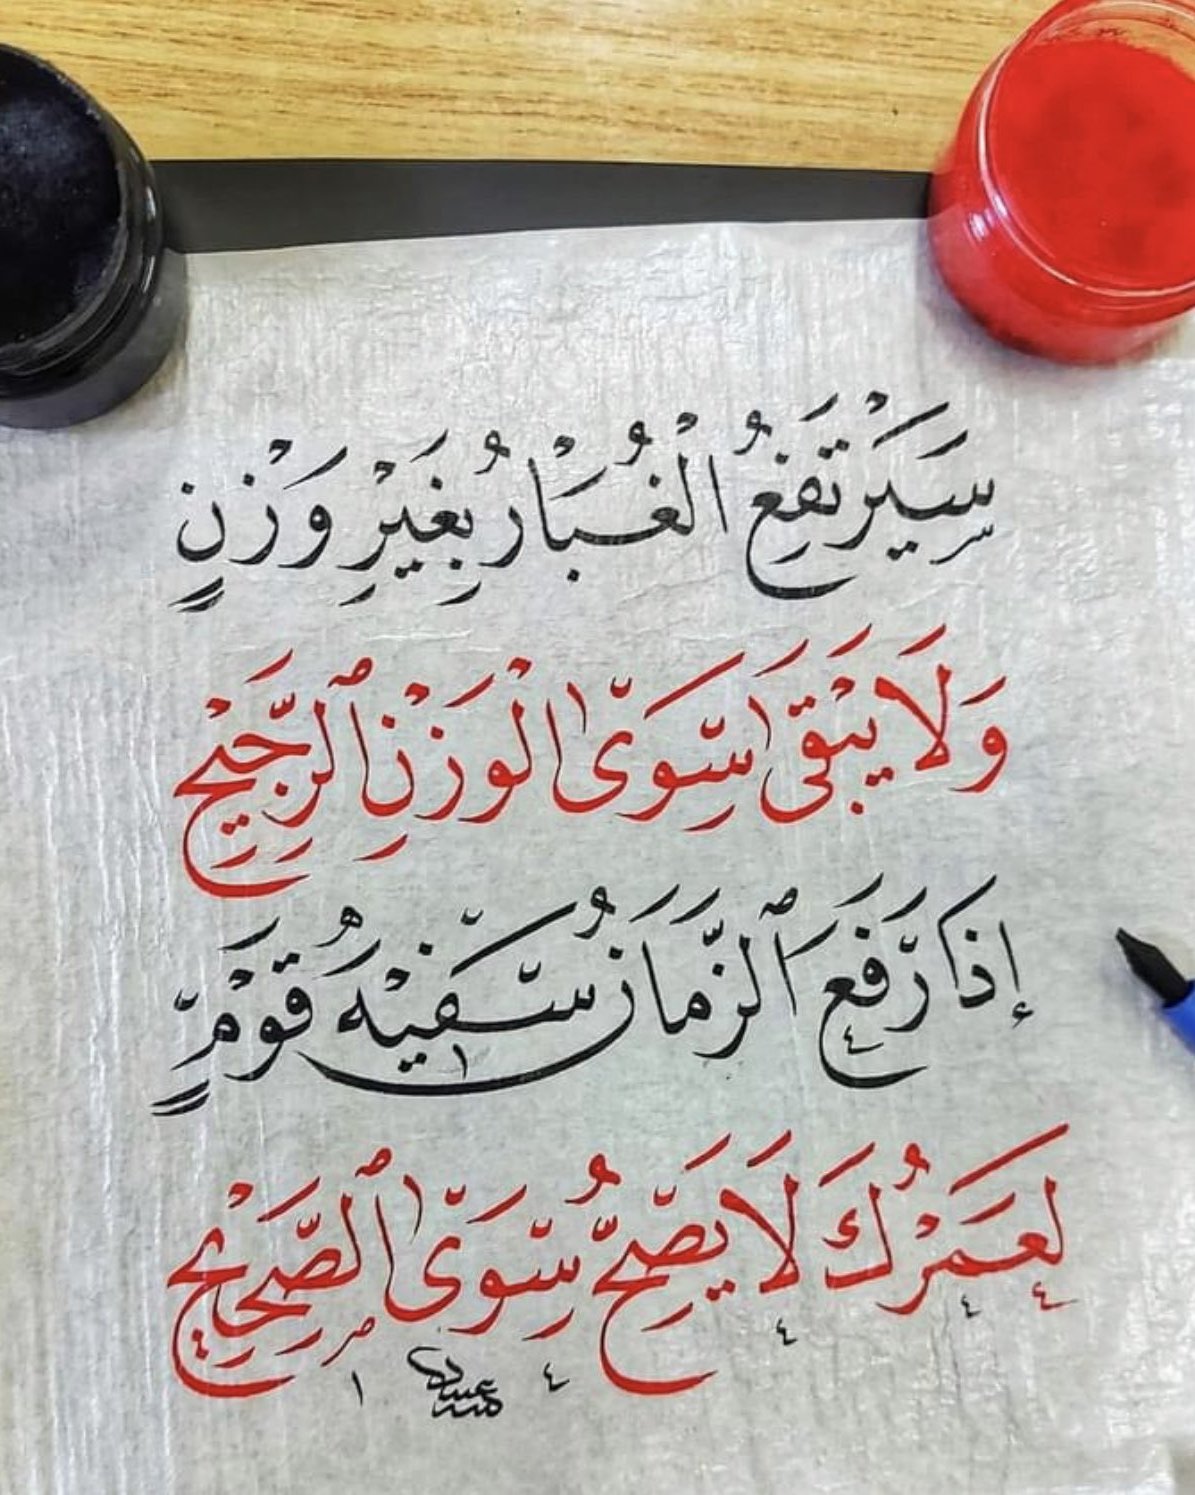 سَيَرْتَفِعُ الْغُبَارُ بِغَيْرِ وَزْنٍ
وَلَا يَبْقَى سِوَى الْوَزْنِ ٱلرَّجِيْحِ
إِذَا رَفَعَ ٱلزَّمَانُ سَفِيْهَ قَوْمٍ
لَعَمْرُكَ لَا يَصِحُّ سِوَى ٱلصَّحِيْحِ